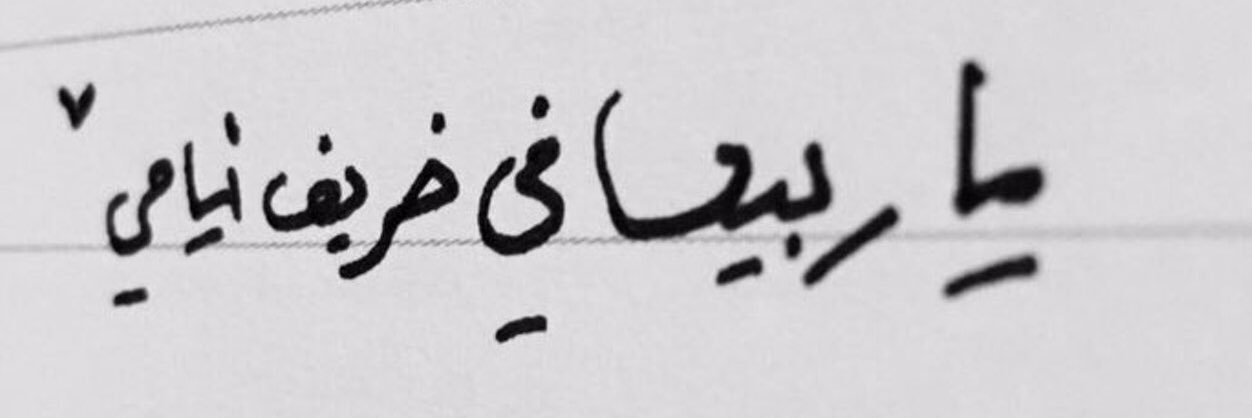 يا ربيعا في خريف أيامي